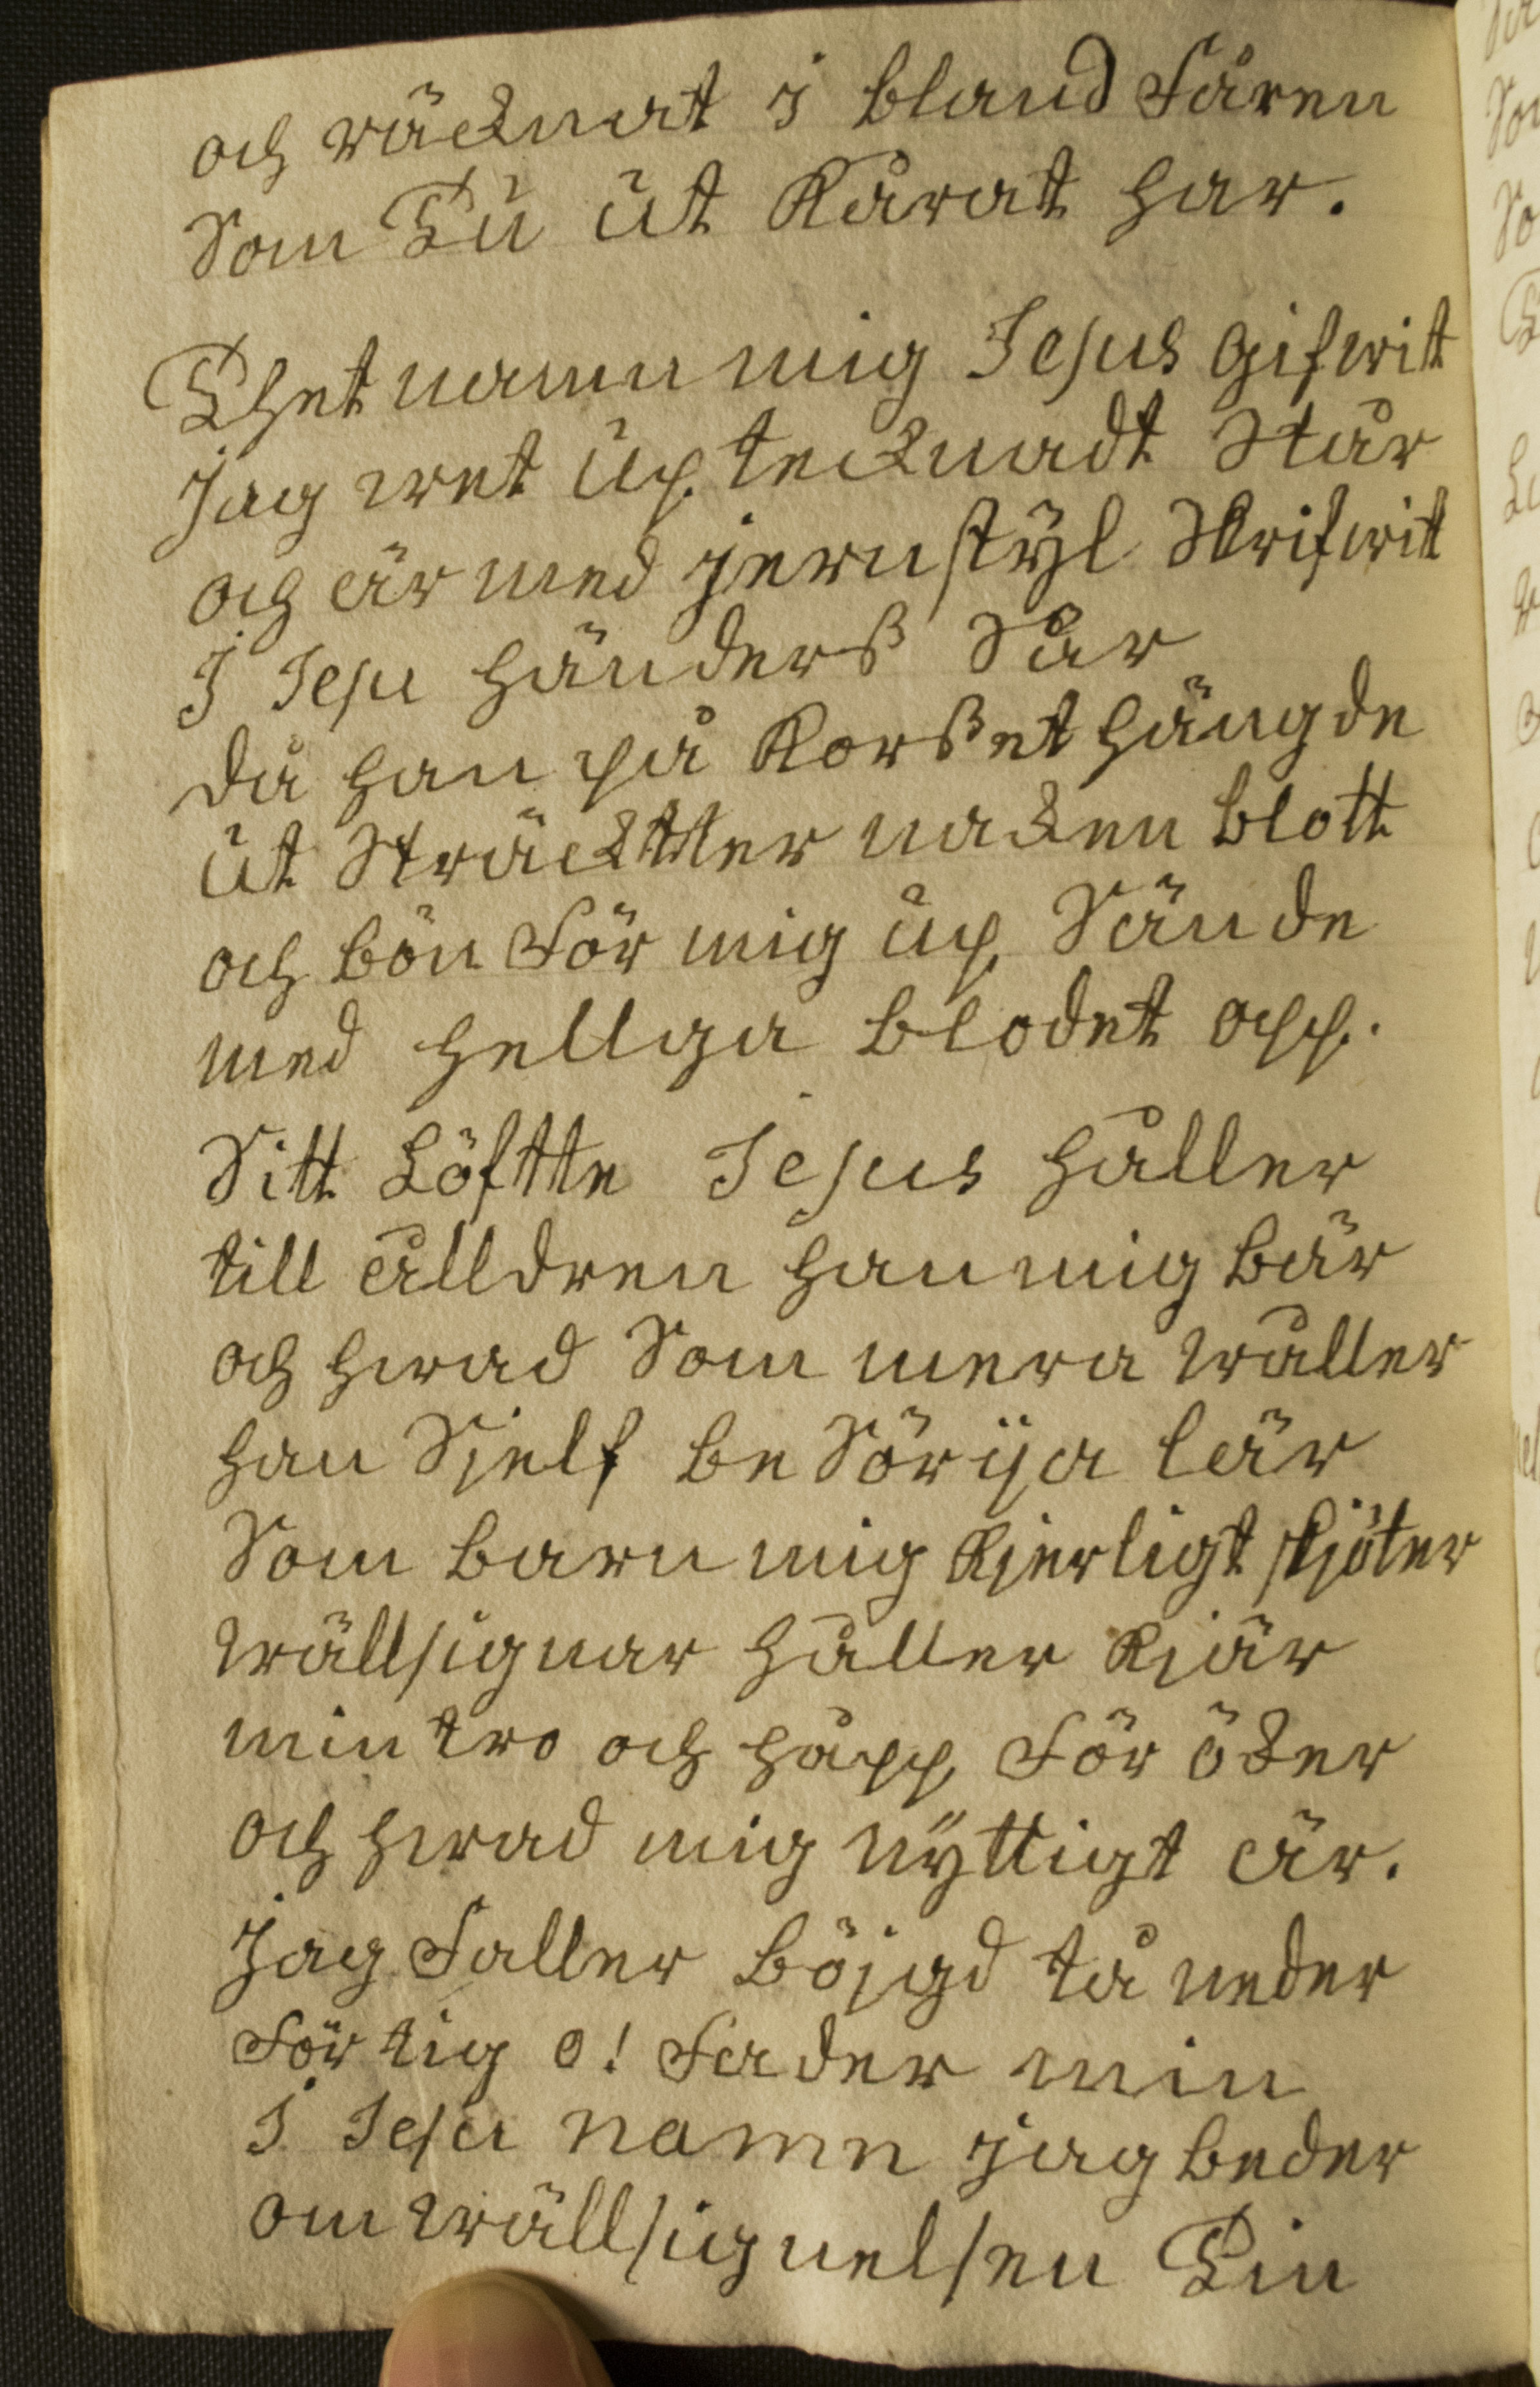 och räcknat i bland Fåren
Som Tu ut Kårat har.
Thet namn mig Jesus gifwit
jag wet up tecknadt Står
och är med jernstÿl Skrifwit
I Jesu händerß Sår
då han på Korßet hängde
ut Sträcktter naken blott
och bön För mig up Sände
med hellga blodet opp.
Sitt Löftte Jesus håller
till ålldren han mig bär
och hwad Som mera wåller
han Sjelf be Sörija lär
Som barn mig Kjerligt skjöter
wällsignar håller Kjär
min tro och håpp För öker
och hwad mig nÿttigt är.
jag Faller böjgd tå neder
För tig o! Fader min
I Jesu namn jag beder
om wällsignelsen Tin